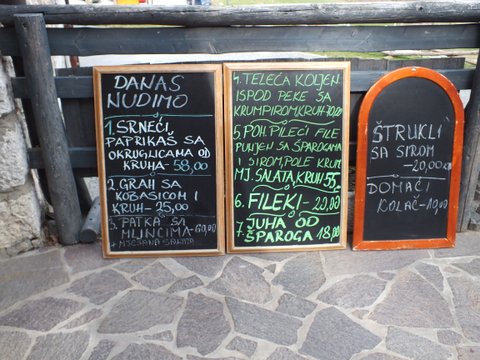 DANAS
NUDIMO
1. SRNEĆI
PAPRIKAŠ SA
OKRUGLICAMA OD
KRUHA - 58,00
2. GRAH SA
KOBASICOM I
KRUH - 25,00
3. PATKA SA
MLINCIMA - 60,00
+ MJEŠANA SALATA
4. TELEĆA KOLJEN.
ISPOD PEKE SA
KRUMPIROM, KRUH
5. POH. PILEĆI FILE
PUNJEN SA ŠPAROGAMA
I SIROM, POLE KRUM
MJ. SALATA KRUH 55,-
6. FILEKI - 20,00
7. JUHA OD
ŠPAROGA 18,00
ŠTRUKLI
SA SIROM
- 20,00
DOMAĆI
KOLAČ - 10,00